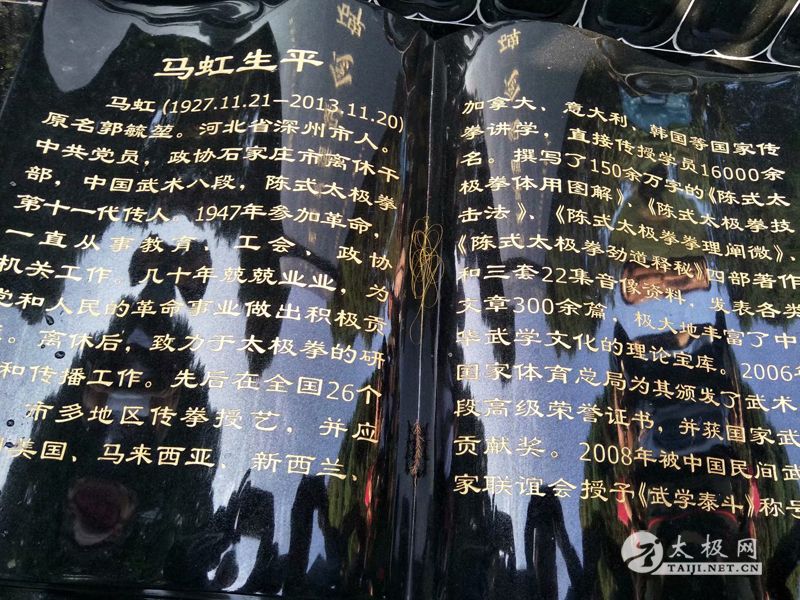 马虹生平
马虹(1927.11.21-2013.11.20)
原名郭毓堃。河北省深州市人。
中共党员，政协石家庄市离休干
部，中国武术八段，陈式太极拳
第十一代传人。1947年参加革命，
一直从事教育、工会，政协
机关工作。几十年兢兢业业，为
党和人民的革命事业做出积极贡
。离休后，致力于太极拳的研
和传播工作。先后在全国26个
市多地区传拳授艺，并应
美国、马来西亚、新西兰、
加拿大、意大利、韩国等国家传
拳讲学，直接传授学员16000余
名。撰写了150余万字的《陈式太
极拳体用图解》、《陈式太极拳技
击法》、《陈式太极拳拳理阐微》、
《陈式太极拳劲道释秘》四部著作
和三套22集音像资料，发表各类
文章300余篇，极大地丰富了中
华武学文化的理论宝库。2006年
国家体育总局为其颁发了武术
段高级荣誉证书，并获国家武
贡献奖。2008年被中国民间武
家联谊会授予《武学泰斗》称号
太极网
TAIJI.NET.CN